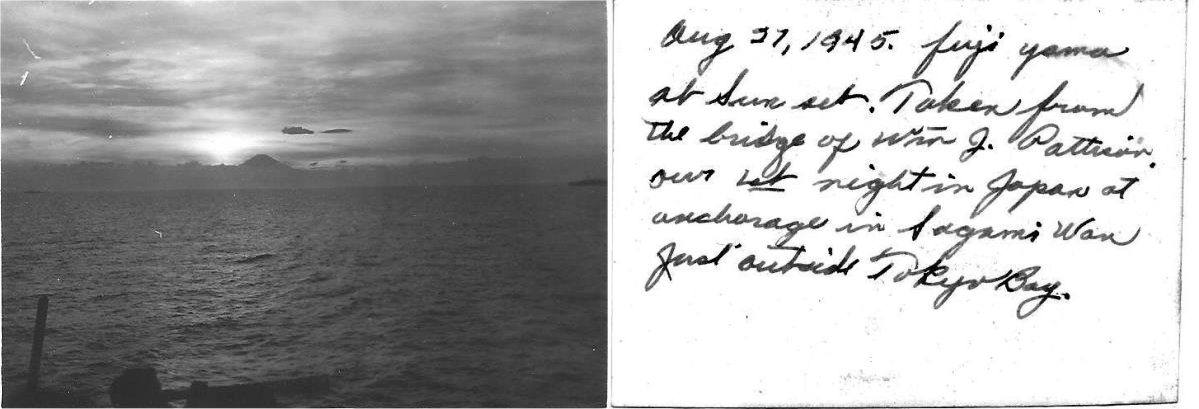 Aug 27, 1945. fuji yama
at Sun set. Taken from
the bridge of Wm J. Pattison
our 1st night in Japan at
anchorage in Sagami Wan
Just outside Tokyo Bay.